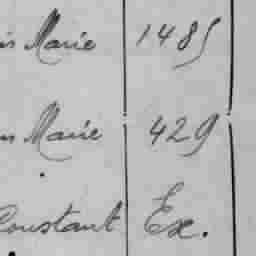 Marie 1485
Marie 429
Constant Ex.